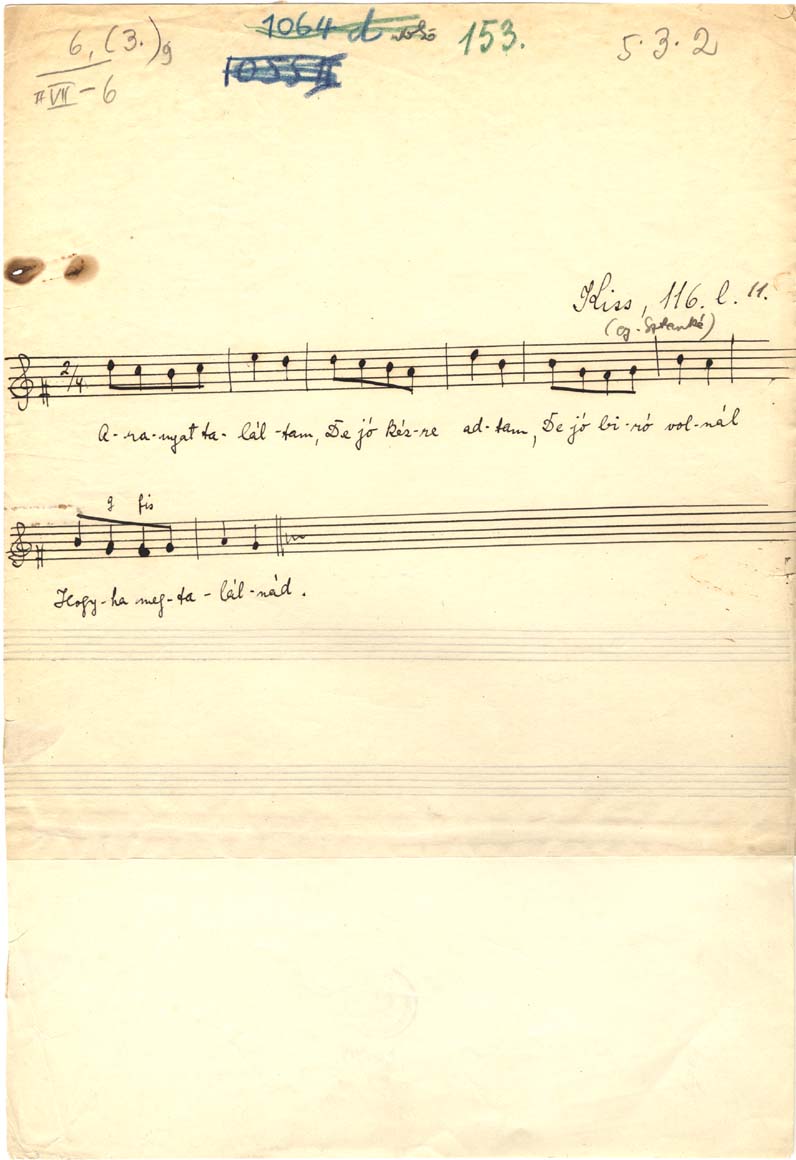 6, (3.) 9
VII - 6
1064 d
153.
5. 3. 2
1055 II
Kiss, 116. l. 11.
2/4
A-ra-nyat ta-lál-tam, De jó kéz-re ad-tam, De jó bi-ró vol-nál
g fis
Hogy-ha meg-ta-lál-nád.